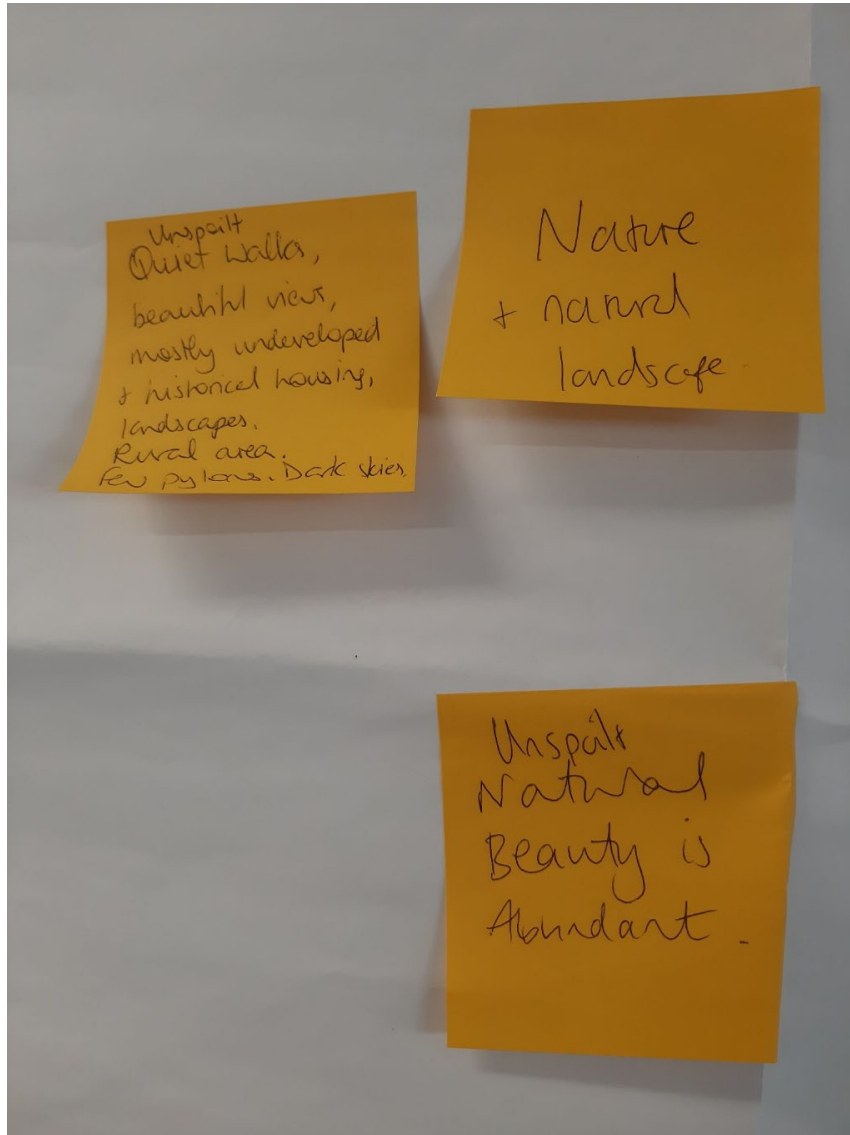 Unspoilt
Quiet walks,
beautiful views,
mostly undeveloped
+ historical housing,
landscapes.
Rural area.
Few pylons. Dark skies.
Nature
+ natural
landscape
Unspoilt
Natural
Beauty is
Abundant.